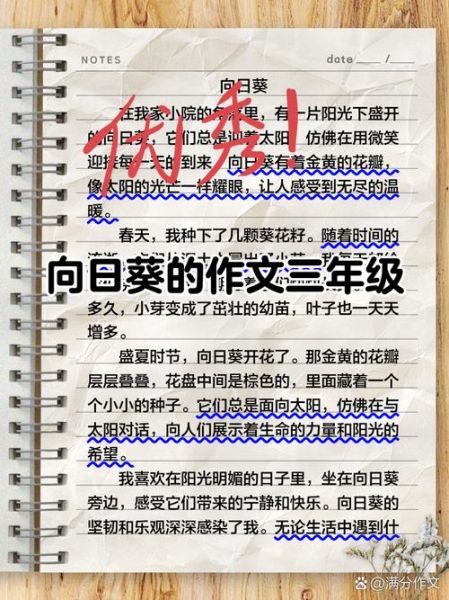 NOTES
date ____ /____
向日葵
优秀!
在我家小院的角落里，有一片阳光下盛开
的向日葵，它们总是迎着太阳，仿佛在用微笑
迎接每一天的到来。向日葵有着金黄的花瓣，
像太阳的光芒一样耀眼，让人感受到无尽的温
暖。
春天，我种下了几颗葵花籽。随着时间的
向日葵的作文三年级
多久，小芽变成了茁壮的幼苗，叶子也一天天
增多。
盛夏时节，向日葵开花了。那金黄的花瓣
层层叠叠，花盘中间是棕色的，里面藏着一个
个小小的种子。它们总是面向太阳，仿佛在与
太阳对话，向人们展示着生命的力量和阳光的
希望。
我喜欢在阳光明媚的日子里，坐在向日葵
旁边，感受它们带来的宁静和快乐。向日葵的
坚韧和乐观深深感染了我。无论生活中遇到什
@满分作文